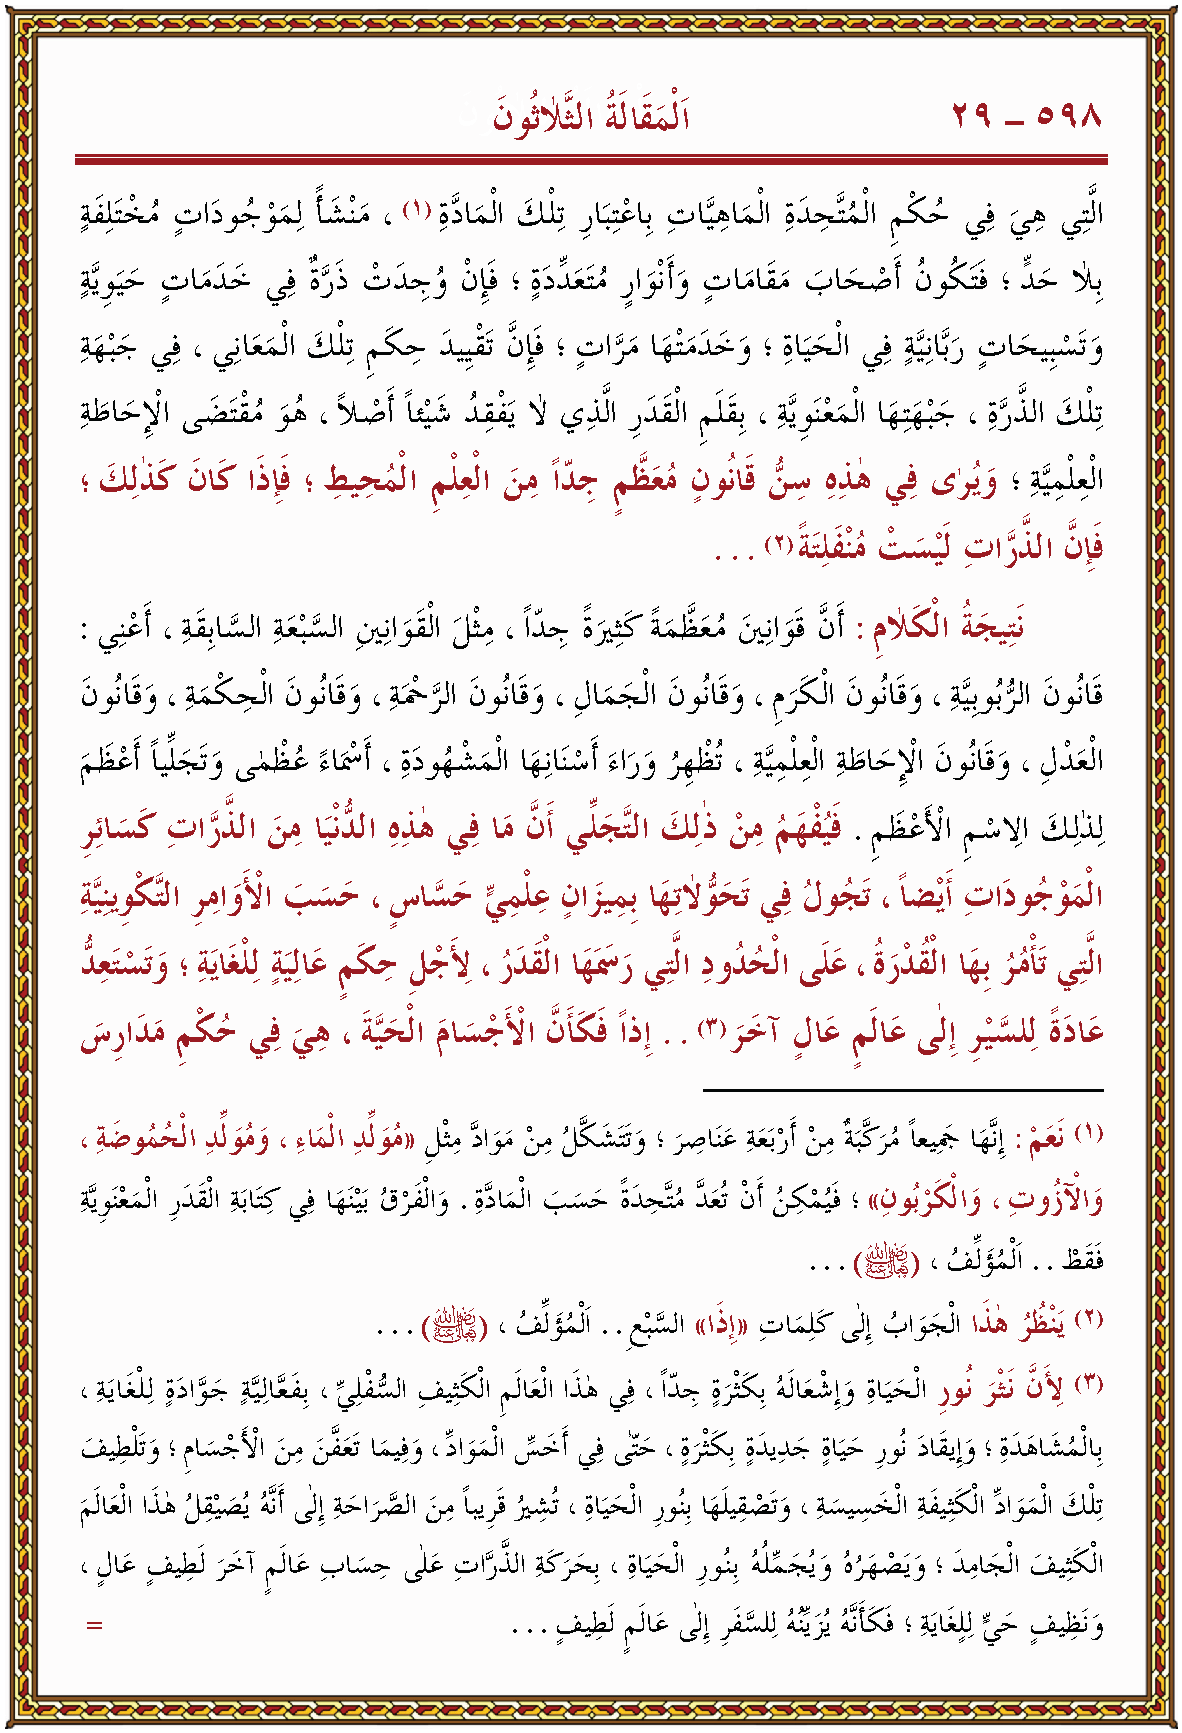 ٥٩٨ ــ ٢٩ اَلْمَقَالَةُ الثَّلاٰثُونَ
الَّتِي هِيَ فِي حُكْمِ الْمُتَّحِدَةِ الْمَاهِيَّاتِ بِاعْتِبَارِ تِلْكَ الْمَادَّةِ (١) ، مَنْشَأً لِمَوْجُودَاتٍ مُخْتَلِفَةٍ
بِلاٰ حَدٍّ ؛ فَتَكُونُ أَصْحَابَ مَقَامَاتٍ وَأَنْوَارٍ مُتَعَدِّدَةٍ ؛ فَإِنْ وُجِدَتْ ذَرَّةٌ فِي خَدَمَاتٍ حَيَوِيَّةٍ
وَتَسْبِيحَاتٍ رَبَّانِيَّةٍ فِي الْحَيَاةِ ؛ وَخَدَمَتْهَا مَرَّاتٍ ؛ فَإِنَّ تَقْيِيدَ حِكَمِ تِلْكَ الْمَعَانِي ، فِي جَبْهَةِ
تِلْكَ الذَّرَّةِ ، جَبْهَتِهَا الْمَعْنَوِيَّةِ ، بِقَلَمِ الْقَدَرِ الَّذِي لاٰ يَفْقِدُ شَيْئاً أَصْلاً ، هُوَ مُقْتَضَى الْإِحَاطَةِ
الْعِلْمِيَّةِ ؛ وَيُرٰى فِي هٰذِهِ سِنُّ قَانُونٍ مُعَظَّمٍ جِدّاً مِنَ الْعِلْمِ الْمُحِيطِ ؛ فَإِذَا كَانَ كَذٰلِكَ ؛
فَإِنَّ الذَّرَّاتِ لَيْسَتْ مُنْفَلِتَةً (٢) . . .
نَتِيجَةُ الْكَلاٰمِ : أَنَّ قَوَانِينَ مُعَظَّمَةً كَثِيرَةً جِدّاً ، مِثْلَ الْقَوَانِينِ السَّبْعَةِ السَّابِقَةِ ، أَعْنِي :
قَانُونَ الرُّبُوبِيَّةِ ، وَقَانُونَ الْكَرَمِ ، وَقَانُونَ الْجَمَالِ ، وَقَانُونَ الرَّحْمَةِ ، وَقَانُونَ الْحِكْمَةِ ، وَقَانُونَ
الْعَدْلِ ، وَقَانُونَ الْإِحَاطَةِ الْعِلْمِيَّةِ ، تُظْهِرُ وَرَاءَ أَسْنَانِهَا الْمَشْهُودَةِ ، أَسْمَاءً عُظْمٰى وَتَجَلِّياً أَعْظَمَ
لِذٰلِكَ الِاسْمِ الْأَعْظَمِ . فَيُفْهَمُ مِنْ ذٰلِكَ التَّجَلِّي أَنَّ مَا فِي هٰذِهِ الدُّنْيَا مِنَ الذَّرَّاتِ كَسَائِرِ
الْمَوْجُودَاتِ أَيْضاً ، تَجُولُ فِي تَحَوُّلاٰتِهَا بِمِيزَانٍ عِلْمِيٍّ حَسَّاسٍ ، حَسَبَ الْأَوَامِرِ التَّكْوِينِيَّةِ
الَّتِي تَأْمُرُ بِهَا الْقُدْرَةُ ، عَلَى الْحُدُودِ الَّتِي رَسَمَهَا الْقَدَرُ ، لِأَجْلِ حِكَمٍ عَالِيَةٍ لِلْغَايَةِ ؛ وَتَسْتَعِدُّ
عَادَةً لِلسَّيْرِ إِلٰى عَالَمٍ عَالٍ آخَرَ (٣) . . إِذاً فَكَأَنَّ الْأَجْسَامَ الْحَيَّةَ ، هِيَ فِي حُكْمِ مَدَارِسَ
(١) نَعَمْ : إِنَّهَا جَمِيعاً مُرَكَّبَةٌ مِنْ أَرْبَعَةِ عَنَاصِرَ ؛ وَتَتَشَكَّلُ مِنْ مَوَادَّ مِثْلِ «مُوَلِّدِ الْمَاءِ ، وَمُوَلِّدِ الْحُمُوضَةِ ،
وَالْآزُوتِ ، وَالْكَرْبُونِ» ؛ فَيُمْكِنُ أَنْ تُعَدَّ مُتَّحِدَةً حَسَبَ الْمَادَّةِ . وَالْفَرْقُ بَيْنَهَا فِي كِتَابَةِ الْقَدَرِ الْمَعْنَوِيَّةِ
فَقَطْ . . اَلْمُؤَلِّفُ ، (رَضِيَ اللهُ تَعَالَى عَنْهُ) . . .
(٢) يَنْظُرُ هٰذَا الْجَوَابُ إِلٰى كَلِمَاتِ «إِذَا» السَّبْعِ . . اَلْمُؤَلِّفُ ، (رَضِيَ اللهُ تَعَالَى عَنْهُ) . . .
(٣) لِأَنَّ نَثْرَ نُورِ الْحَيَاةِ وَإِشْعَالَهُ بِكَثْرَةٍ جِدّاً ، فِي هٰذَا الْعَالَمِ الْكَثِيفِ السُّفْلِيِّ ، بِفَعَّالِيَّةٍ جَوَّادَةٍ لِلْغَايَةِ ،
بِالْمُشَاهَدَةِ ؛ وَإِيقَادَ نُورِ حَيَاةٍ جَدِيدَةٍ بِكَثْرَةٍ ، حَتّٰى فِي أَخَسِّ الْمَوَادِّ ، وَفِيمَا تَعَفَّنَ مِنَ الْأَجْسَامِ ؛ وَتَلْطِيفَ
تِلْكَ الْمَوَادِّ الْكَثِيفَةِ الْخَسِيسَةِ ، وَتَصْقِيلَهَا بِنُورِ الْحَيَاةِ ، تُشِيرُ قَرِيباً مِنَ الصَّرَاحَةِ إِلٰى أَنَّهُ يُصَيْقِلُ هٰذَا الْعَالَمَ
الْكَثِيفَ الْجَامِدَ ؛ وَيَصْهَرُهُ وَيُجَمِّلُهُ بِنُورِ الْحَيَاةِ ، بِحَرَكَةِ الذَّرَّاتِ عَلٰى حِسَابِ عَالَمٍ آخَرَ لَطِيفٍ عَالٍ ،
وَنَظِيفٍ حَيٍّ لِلْغَايَةِ ؛ فَكَأَنَّهُ يُزَيِّنُهُ لِلسَّفَرِ إِلٰى عَالَمٍ لَطِيفٍ . . . =